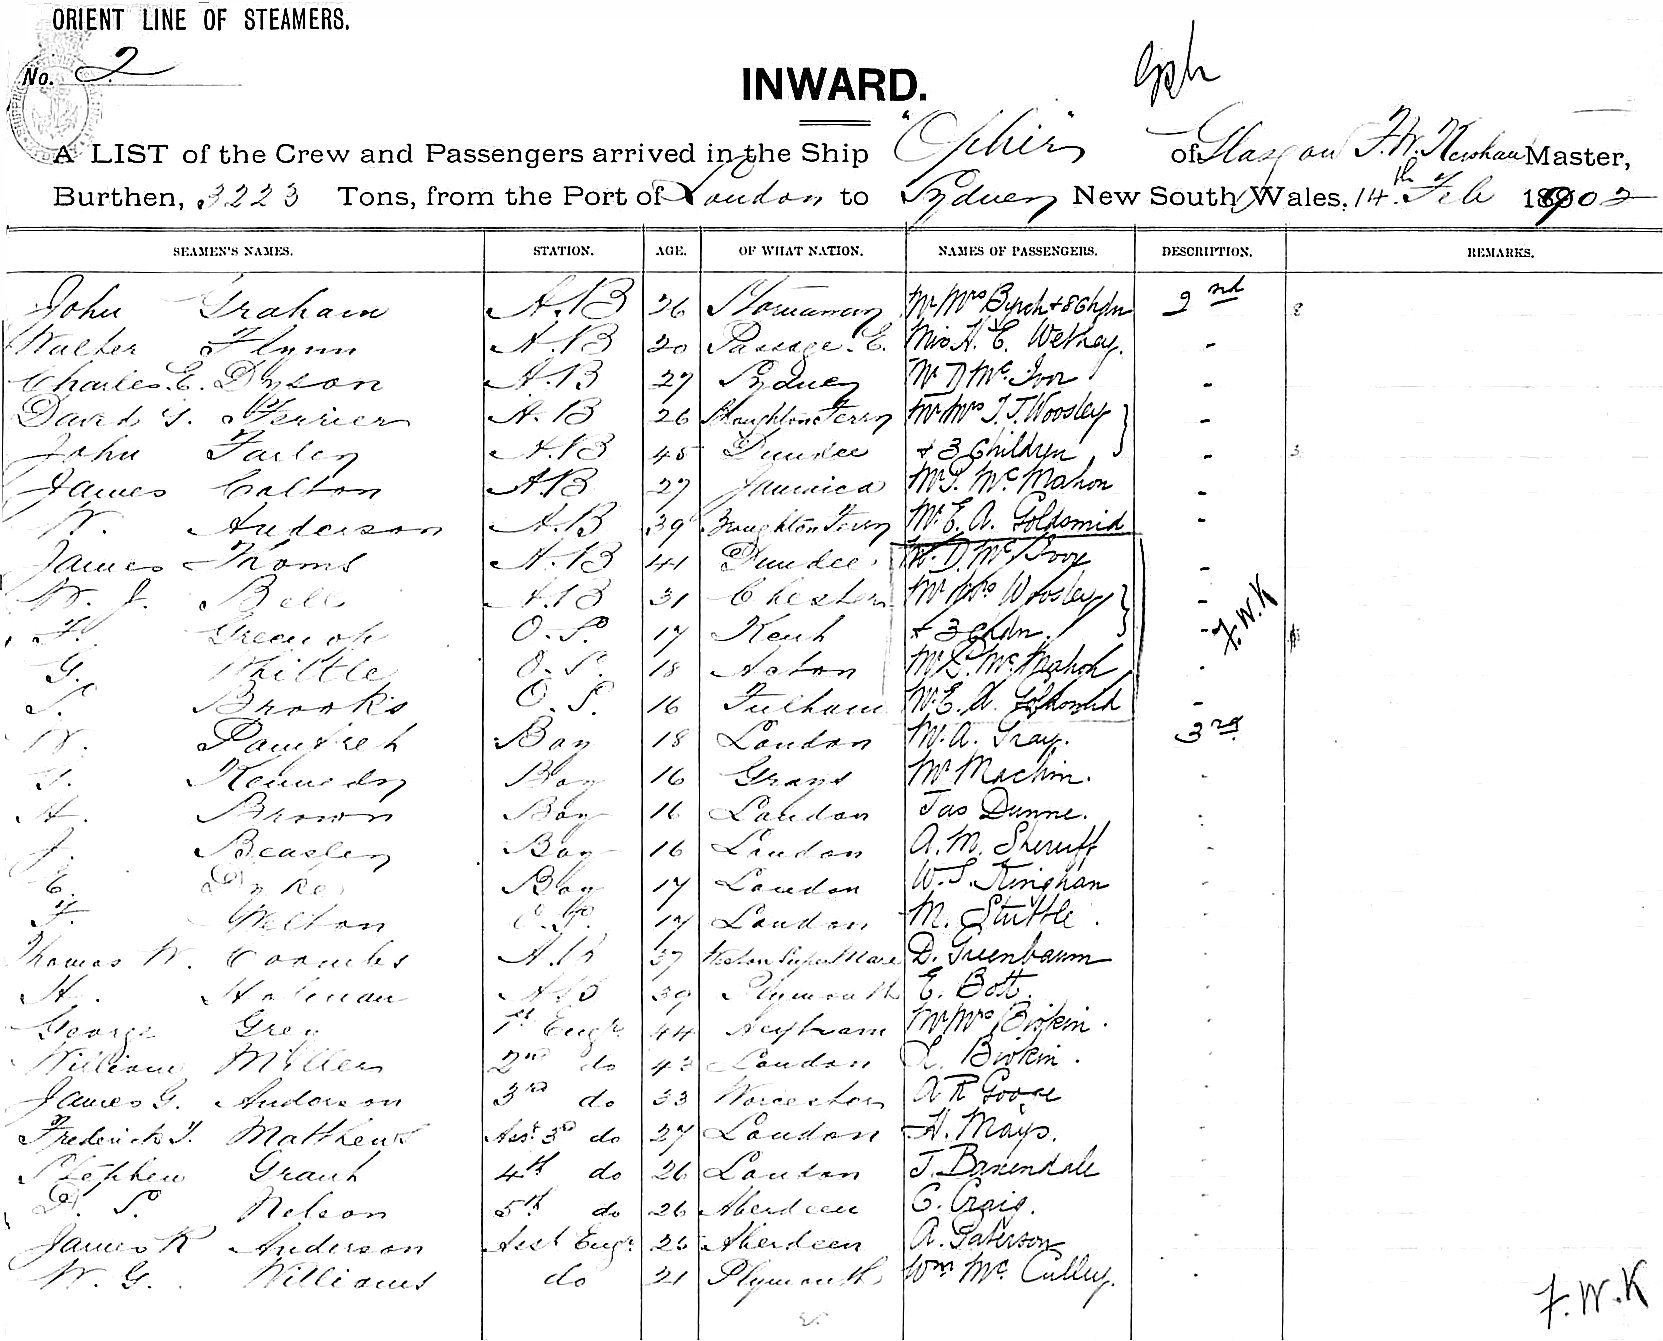 ORIENT LINE OF STEAMERS.
No. 2
INWARD.
A LIST of the Crew and Passengers arrived in the Ship "Ophir" of Glasgow F. W. Kershaw Master,
Burthen, 3223 Tons, from the Port of London to Sydney New South Wales, 14th Feb 1902
SEAMEN'S NAMES. STATION. AGE. OF WHAT NATION. NAMES OF PASSENGERS. DESCRIPTION. REMARKS.
John Graham A.B 26 Mr Mrs Byrch + 8 Chdn 2nd 8
Walter Flynn A.B 20 Passage E. Miss H. E. Wethey. -
Charles E. Dyson A.B 27 Sydney Mr D Mc Ivor -
David S. Ferrier A.B 26 Broughton Ferry Mr Mrs T. T. Woosley } -
John Farley A.B 45 Dundee + 3 Children - 3
James Colton A.B 27 Jamaica Mr S. Mc Mahon -
W. Anderson A.B 39 Broughton Ferry Mr E. A. Goldsmid -
James Thoms A.B 41 Dundee Mr D. Mc Ivor -
W. J. Bell A.B 31 Chester Mr Mrs Woosley } - F.W.K
F. Greenoh O.S. 17 Kent + 3 chdn. -
G. Whittle O.S. 18 Acton Mr S. Mc Mahon -
S. Brooks O.S. 16 Fulham Mr E. A. Goldsmid -
W. Pamfreh Boy 18 London Mr A. Gray. 3rd
T. Kennedy Boy 16 Grays Mr Machin. -
A. Brown Boy 16 London Jas Dunne. -
J. Beasley Boy 16 London A. M. Sheriff -
E. Dyke Boy 17 London W. S. Kinghan -
F. Welton O.S. 17 London M. Stuttle. -
Thomas W. Coombs A.B 37 Weston Super Mare D. Greenbaum -
H. Holman A.B 39 Plymouth E. Bott. -
George Grey 1st Engr. 44 Mr Mrs Birkin. -
William Miller 2nd do 43 London Birkin. -
James G. Anderson 3rd do 33 Worcester A R Goose -
Frederick T. Matthews Asst 3rd do 27 London H. Mays. -
Stephen Grant 4th do 26 London J. Baxendale -
D. S. Nelson 5th do 26 Aberdeen C. Craig. -
James R Anderson Asst Engr. 25 Aberdeen A. Paterson -
W. G. Williams do 21 Plymouth Wm Mc Culley. -
F.W.K